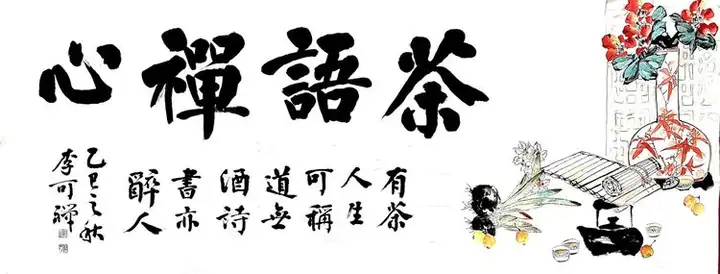 茶語禪心
有茶
人生
可稱
道無
酒詩
書亦
醉人
乙巳之秋
李可禅